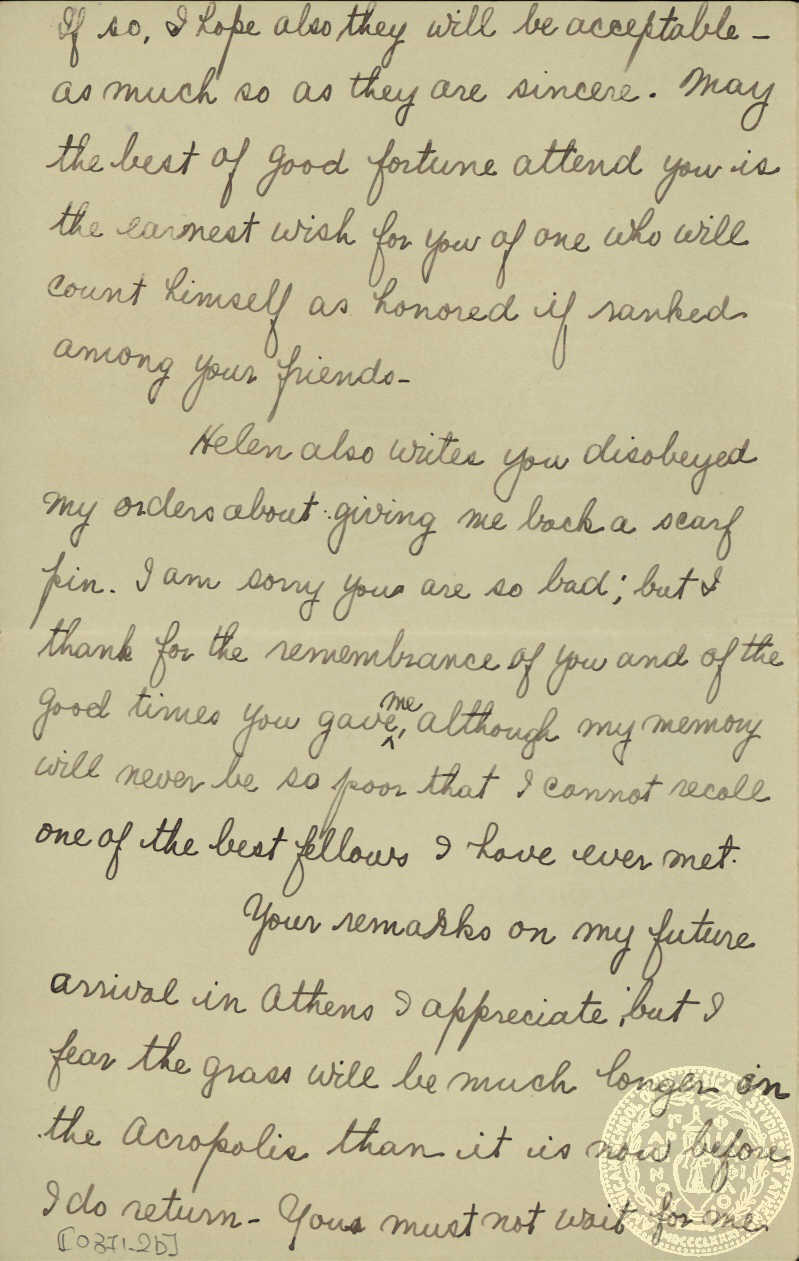 If so, I hope also they will be acceptable –
as much so as they are sincere. May
the best of good fortune attend you is
the earnest wish for you of one who will
count himself as honored if ranked
among your friends –
Helen also writes you disobeyed
my orders about giving me back a scarf
pin. I am sorry you are so bad; but I
thank for the remembrance of you and of the
good times you gave me, although my memory
will never be so poor that I cannot recall
one of the best fellows I have ever met.
Your remarks on my future
arrival in Athens I appreciate, but I
fear the grass will be much longer on
the Acropolis than it is now before
I do return – You must not wait for me
[0371-2b]